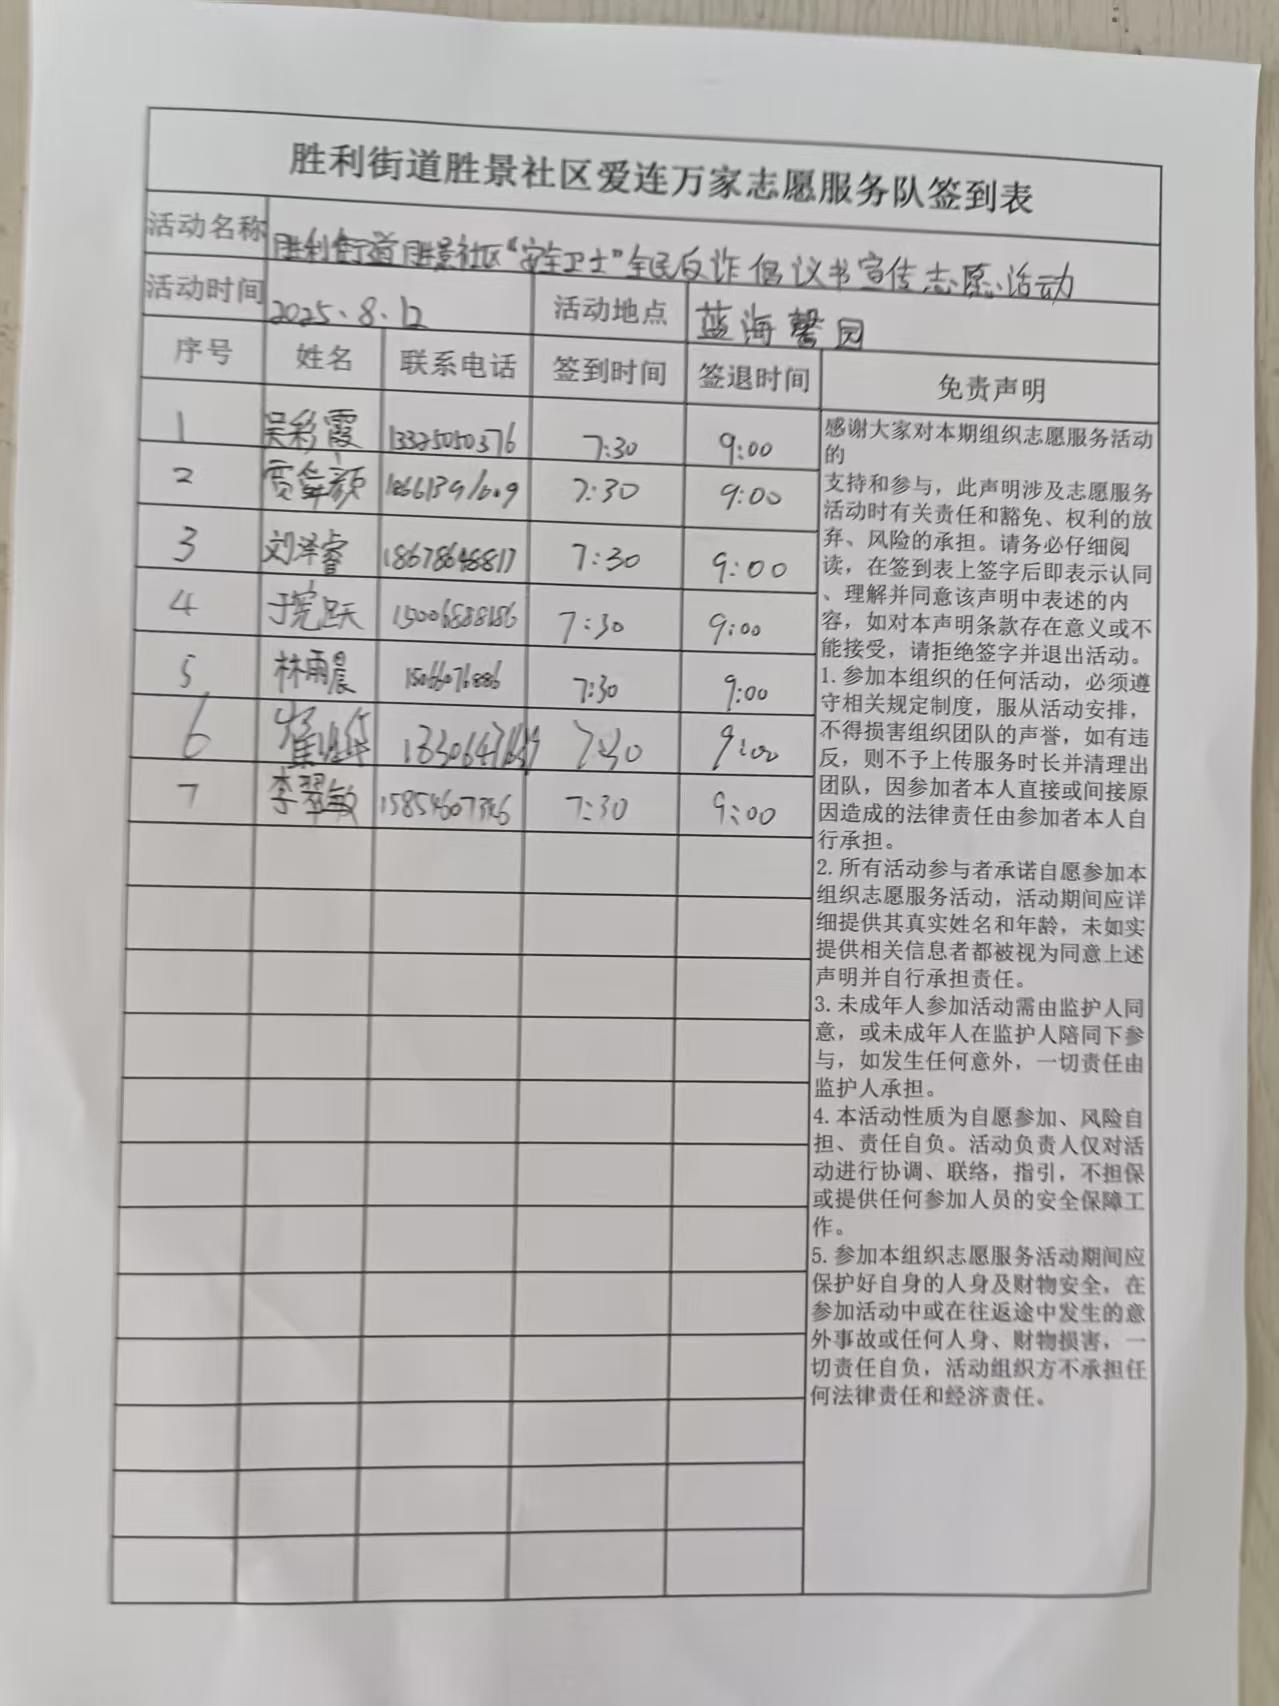 胜利街道胜景社区爱连万家志愿服务队签到表
活动名称 胜利街道胜景社区“安全卫士”全民反诈倡议书宣传志愿活动
活动时间 2025.8.12 活动地点 蓝海馨园
序号 姓名 联系电话 签到时间 签退时间 免责声明
1 吴彩霞 13325050376 7:30 9:00
2 7:30 9:00
3 刘泽睿 18678648817 7:30 9:00
4 7:30 9:00
5 林雨晨 15066076886 7:30 9:00
6 7:30 9:00
7 李翠敏 7:30 9:00
感谢大家对本期组织志愿服务活动
的
支持和参与，此声明涉及志愿服务
活动时有关责任和豁免、权利的放
弃、风险的承担。请务必仔细阅
读，在签到表上签字后即表示认同
、理解并同意该声明中表述的内
容，如对本声明条款存在意义或不
能接受，请拒绝签字并退出活动。
1.参加本组织的任何活动，必须遵
守相关规定制度，服从活动安排，
不得损害组织团队的声誉，如有违
反，则不予上传服务时长并清理出
团队，因参加者本人直接或间接原
因造成的法律责任由参加者本人自
行承担。
2.所有活动参与者承诺自愿参加本
组织志愿服务活动，活动期间应详
细提供其真实姓名和年龄，未如实
提供相关信息者都被视为同意上述
声明并自行承担责任。
3.未成年人参加活动需由监护人同
意，或未成年人在监护人陪同下参
与，如发生任何意外，一切责任由
监护人承担。
4.本活动性质为自愿参加、风险自
担、责任自负。活动负责人仅对活
动进行协调、联络，指引，不担保
或提供任何参加人员的安全保障工
作。
5.参加本组织志愿服务活动期间应
保护好自身的人身及财物安全，在
参加活动中或在往返途中发生的意
外事故或任何人身、财物损害，一
切责任自负，活动组织方不承担任
何法律责任和经济责任。